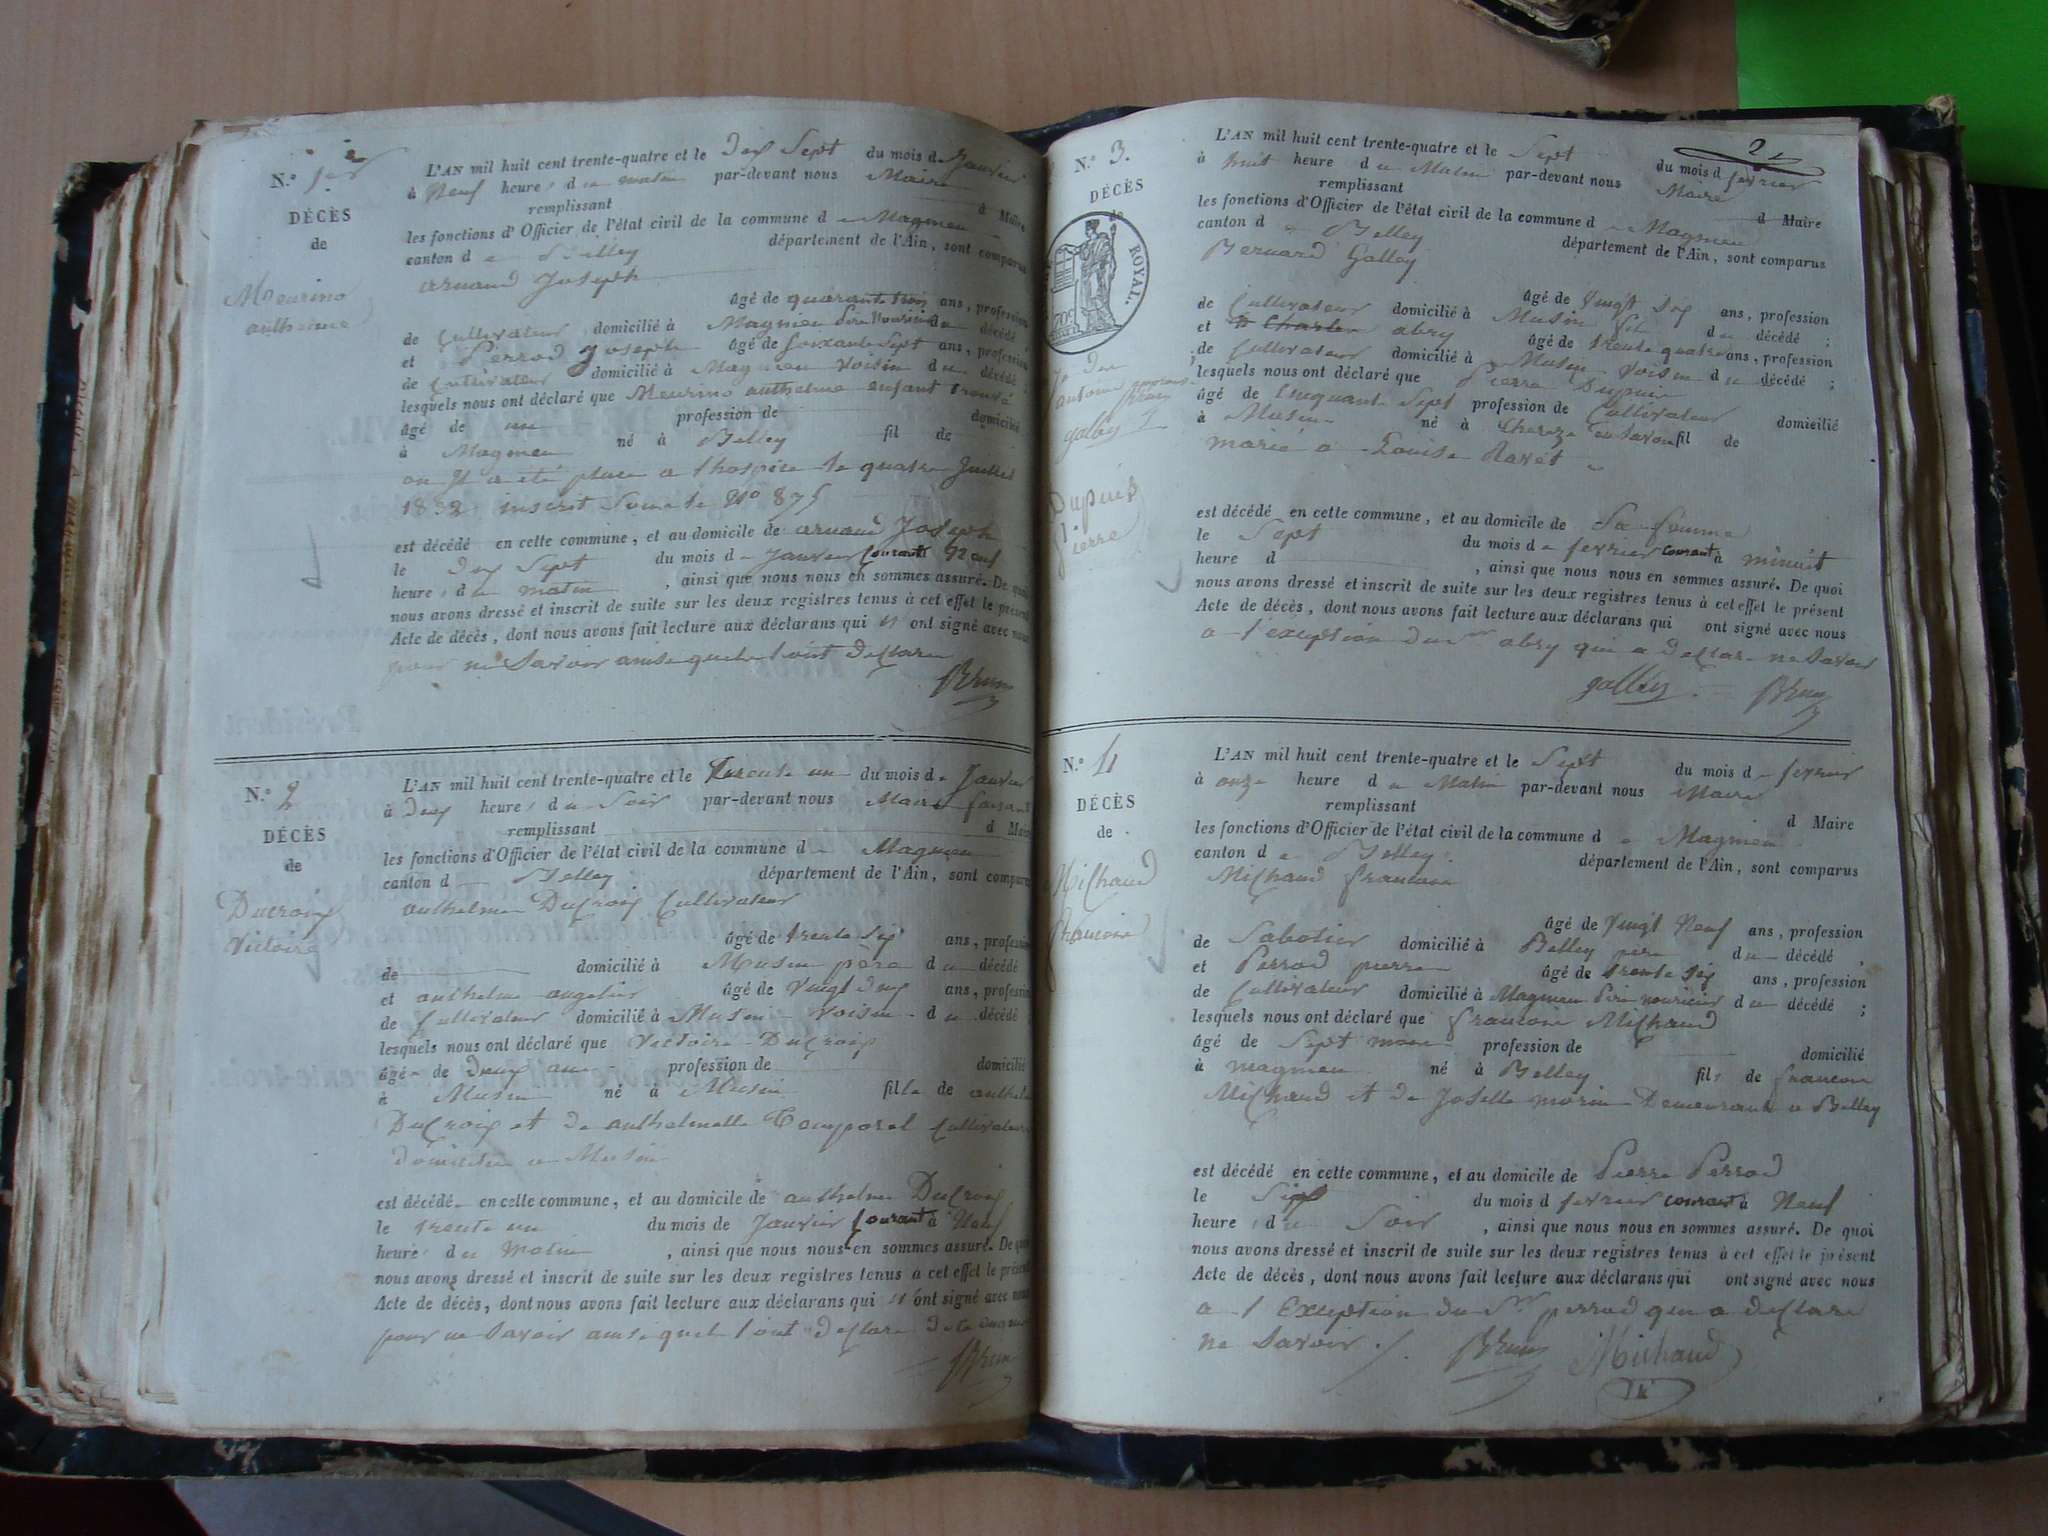 N.° 1er
DÉCÈS
de
Meurino
anthelme
L'AN mil huit cent trente-quatre et le dix Sept du mois d Janvier
à Neuf heure s d u matin par-devant nous Maire
remplissant d Maire
les fonctions d'Officier de l'état civil de la commune d e Magnieu
canton d e Belley département de l'Ain, sont comparus
arnaud Joseph
âgé de quarante trois ans, profession
de Cultivateur domicilié à Magnieu Père Nouricier d u décédé ;
et Perrod Joseph âgé de Soixante Sept ans, profession
de Cultivateur domicilié à Magnieu Voisin d u décédé ;
lesquels nous ont déclaré que Meurino anthelme enfant trouvé
âgé de un profession de domicilié
à Magnieu né à Belley fil de
ou Il a été placé a lhospice le quatre Juillet
1832 inscrit Sous le No 875
est décédé en cette commune, et au domicile de arnaud Joseph
le dix Sept du mois d e Janvier Courant à Neuf
heure s d u matin , ainsi que nous nous en sommes assuré. De quoi
nous avons dressé et inscrit de suite sur les deux registres tenus à cet effet le présent
Acte de décès, dont nous avons fait lecture aux déclarans qui n ont signé avec nous
pour ne Savoir ainsi quils lont declaré
Brun
N.° 2
DÉCÈS
de
Ducroix
Victoire
L'AN mil huit cent trente-quatre et le trente un du mois d e Janvier
à Deux heure s d u Soir par-devant nous Maire faisant
remplissant d Maire
les fonctions d'Officier de l'état civil de la commune d e Magnieu
canton d e Belley département de l'Ain, sont comparus
anthelme DuCroix Cultivateur
âgé de trente Six ans, profession
de domicilié à Musin père d u décédé
et anthelme angelier âgé de Vingt deux ans, profession
de Cultivateur domicilié à Musin Voisin d u décédé ;
lesquels nous ont déclaré que Victoire DuCroix
âgé e de Deux ans profession de domicilié
à Musin né à Musin fille de anthelme
DuCroix et de anthelmette Temporal Cultivateurs
domiciliés a Musin
est décédé e en cette commune, et au domicile de anthelme DuCroix
le trente un du mois de Janvier Courant à Neuf
heure s d u Matin , ainsi que nous nous en sommes assuré. De quoi
nous avons dressé et inscrit de suite sur les deux registres tenus à cet effet le présent
Acte de décès, dont nous avons fait lecture aux déclarans qui n ont signé avec nous
pour ne Savoir ainsi quils lont declaré de ce enquis
Brun
2
N.° 3.
DÉCÈS
de
ROYAL.
galley
Dupuis
Pierre
L'AN mil huit cent trente-quatre et le Sept du mois d fevrier
à huit heure d u Matin par-devant nous Maire
remplissant d Maire
les fonctions d'Officier de l'état civil de la commune d e Magnieu
canton d e Belley département de l'Ain, sont comparus
Bernard Galley
âgé de Vingt Six ans, profession
de Cultivateur domicilié à Musin fils d u décédé ;
et Charles abry âgé de trente quatre ans, profession
de Cultivateur domicilié à Musin Voisin d u décédé ;
lesquels nous ont déclaré que Pierre Dupuis
âgé de Cinquante Sept profession de Cultivateur domicilié
à Musin né à en Savoie fil de
marié a Louise Ravet
est décédé en cette commune, et au domicile de Sa femme
le Sept du mois d e fevrier courant à minuit
heure d , ainsi que nous nous en sommes assuré. De quoi
nous avons dressé et inscrit de suite sur les deux registres tenus à cet effet le présent
Acte de décès, dont nous avons fait lecture aux déclarans qui ont signé avec nous
a l'exception du Sr abry qui a declaré ne Savoir
galley Brun
N.° 4
DÉCÈS
de
Michaud
francois
L'AN mil huit cent trente-quatre et le Sept du mois d e fevrier
à onze heure d u Matin par-devant nous Maire
remplissant d Maire
les fonctions d'Officier de l'état civil de la commune d e Magnieu
canton d e Belley. département de l'Ain, sont comparus
Michaud francois
âgé de Vingt Neuf ans, profession
de Sabotier domicilié à Belley père d u décédé ,
et Perrod pierre âgé de trente Six ans, profession
de Cultivateur domicilié à Magnieu Père nouricier d u décédé ;
lesquels nous ont déclaré que francois Michaud
âgé de Sept mois profession de domicilié
à magnieu né à Belley fils de francois
Michaud et de Josette morin Demeurant a Belley
est décédé en cette commune, et au domicile de Pierre Perrod
le Six du mois d fevrier courant à Neuf
heure s d u Soir , ainsi que nous nous en sommes assuré. De quoi
nous avons dressé et inscrit de suite sur les deux registres tenus à cet effet le présent
Acte de décès, dont nous avons fait lecture aux déclarans qui ont signé avec nous
a l'Exception du Sr perrod qui a declaré
ne Savoir. Brun Michaud